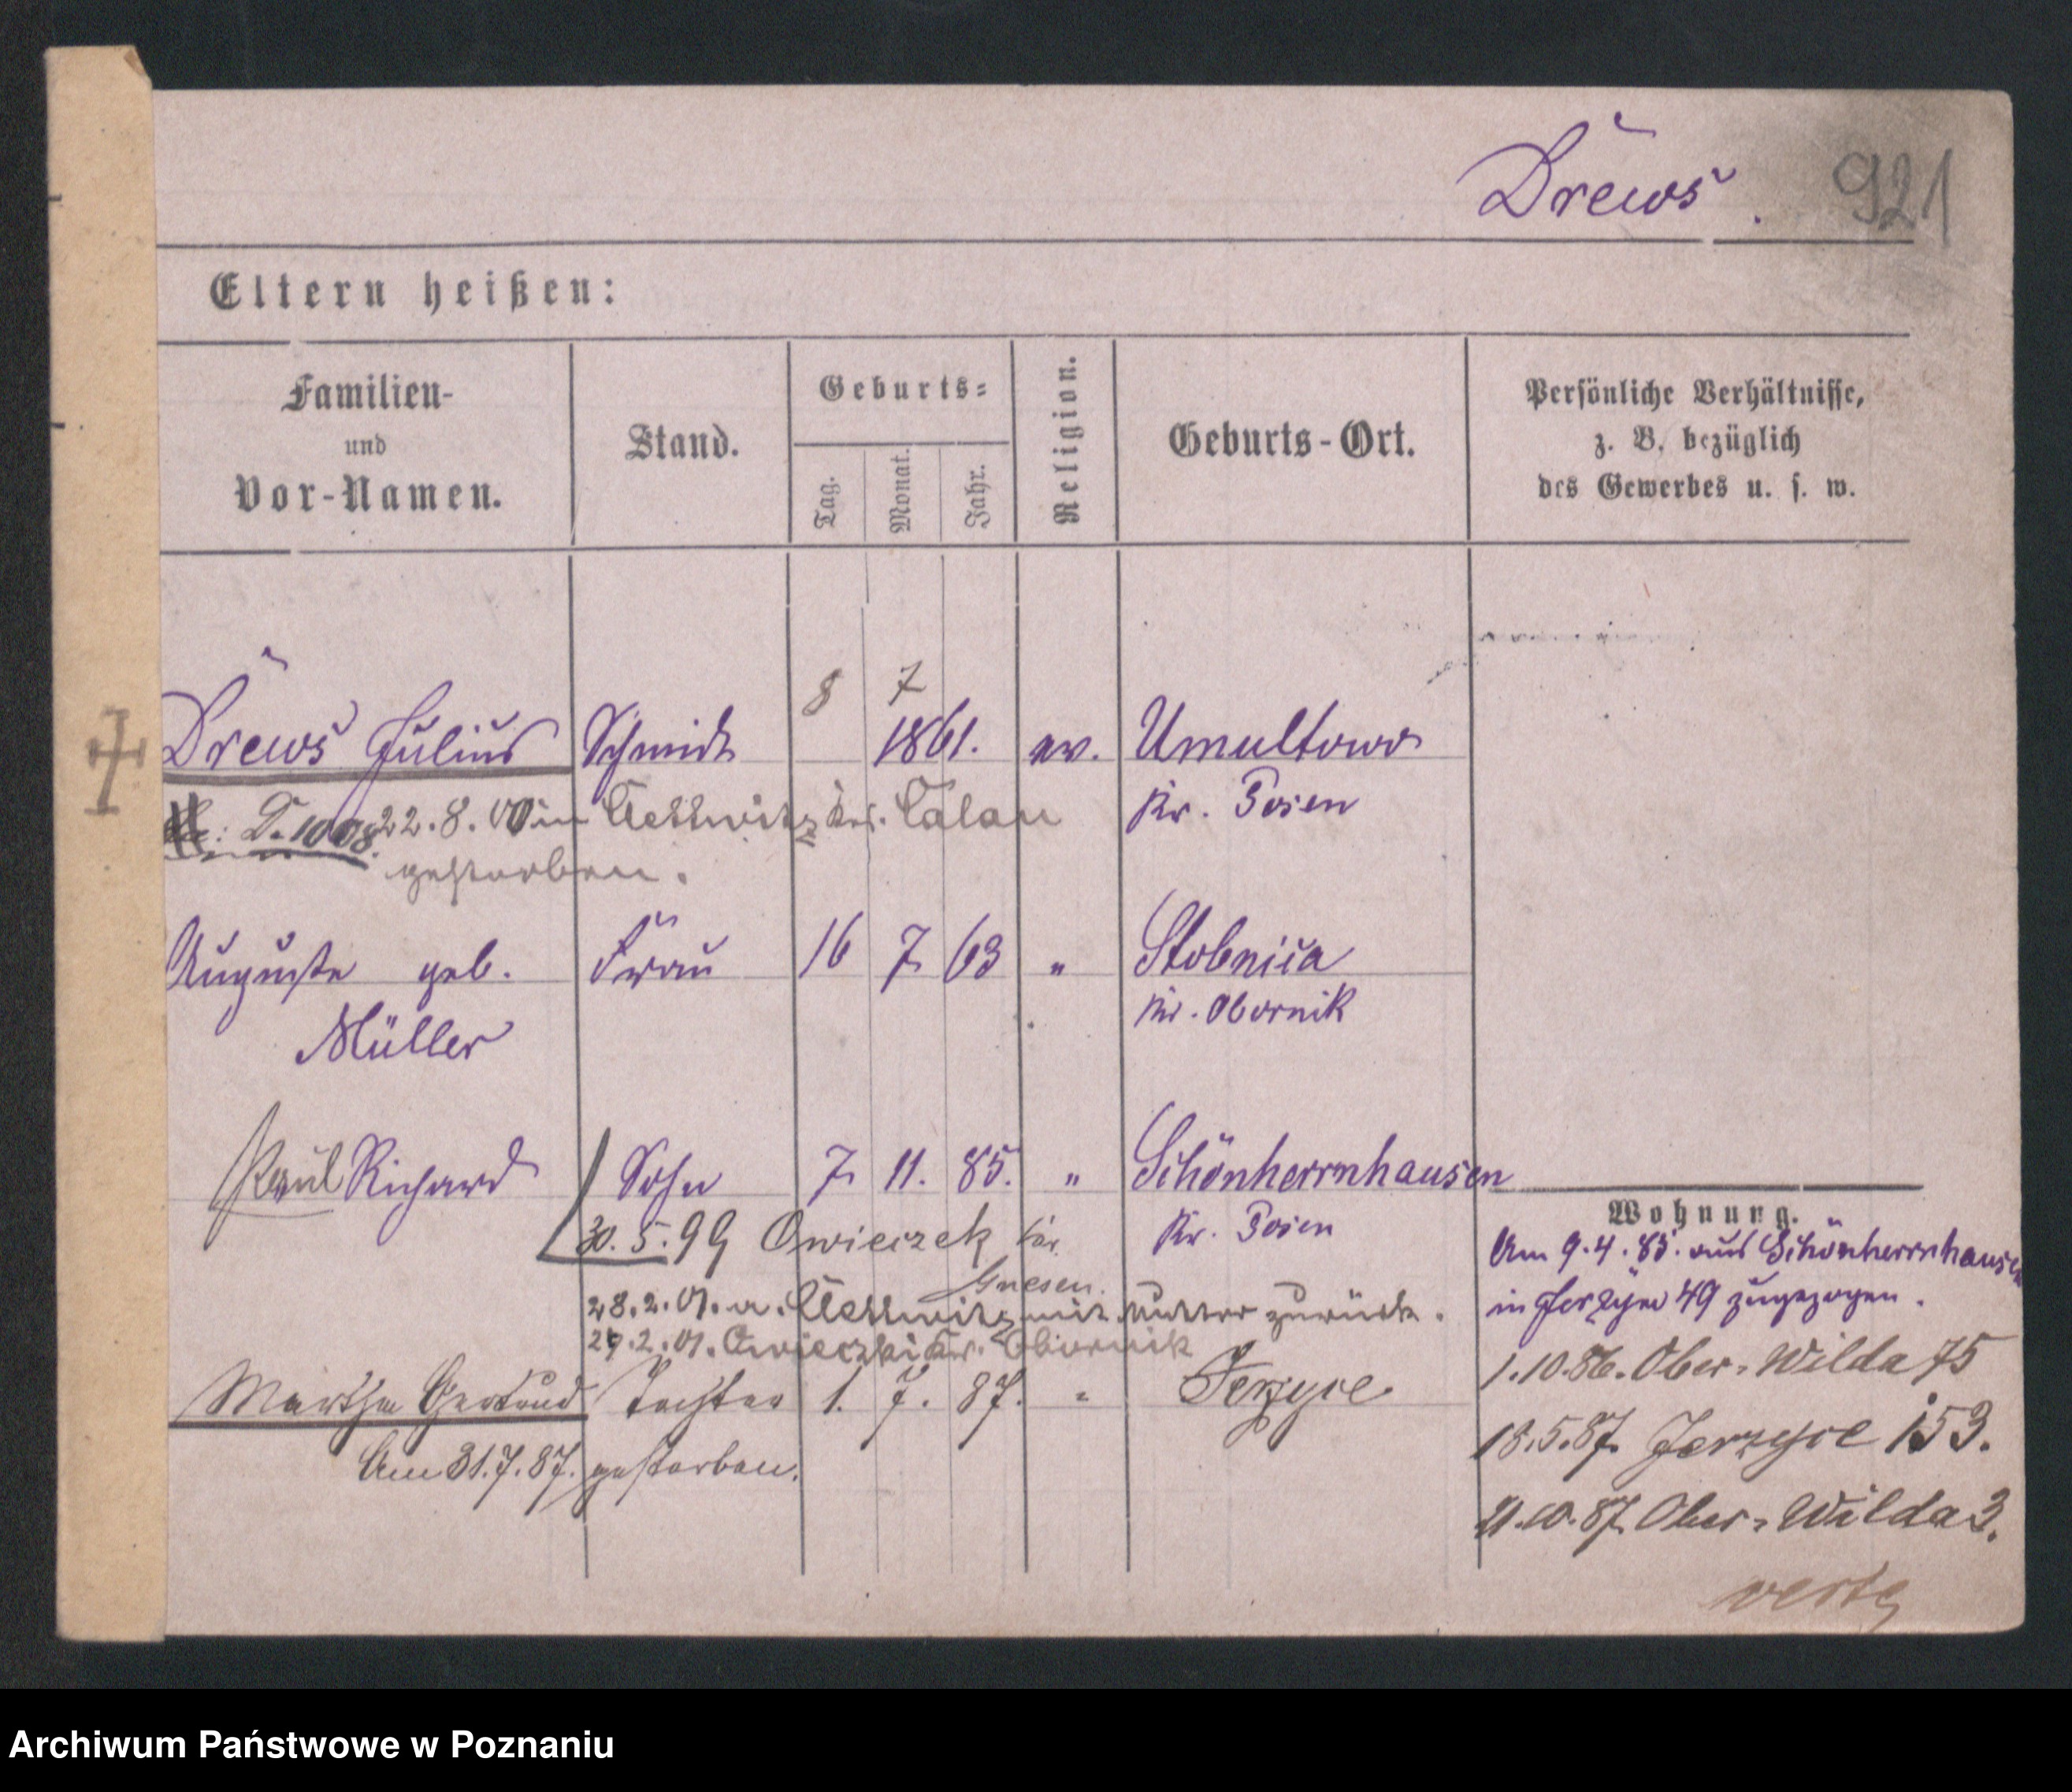 Drews. 921
Eltern heißen:
Familien-
und
Vor-Namen.
Stand.
Geburts=
Tag.
Monat.
Jahr.
Religion.
Geburts-Ort.
Persönliche Verhältnisse,
z. B. bezüglich
des Gewerbes u. s. w.
8 7
Drews Julius Schmidt 1861. ev. Umultowo
Kr. Posen
D. 1008. 22.8.00 in Kr. Calau
gestorben.
Auguste geb. Frau 16 7. 63 " Stobnica
Müller
Kr. Obornik
Paul Richard Sohn 7. 11. 85. " Schönherrnhausen
Kr. Posen
30.5.99 Owieczek Kr.
Gnesen.
28.2.01. mit Mutter zurück.
29.2.01. Kr. Obornik
Martha Gertrud Tochter 1. 7. 87. " Jerzyce
Am 31.7.87. gestorben.
Wohnung.
Am 9.4.85. aus Schönherrnhausen
in Jerzyce 49 zugezogen.
1.10.86. Ober-Wilda 75
18.5.87. Jerzyce 153.
21.10.87. Ober-Wilda 3.
verte
Archiwum Państwowe w Poznaniu